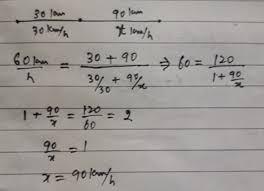 30 km 90 km
30 km/h x km/h
60 km/h = (30 + 90)/(30/30 + 90/x) ⇒ 60 = 120/(1 + 90/x)
1 + 90/x = 120/60 = 2
90/x = 1
x = 90 km/h